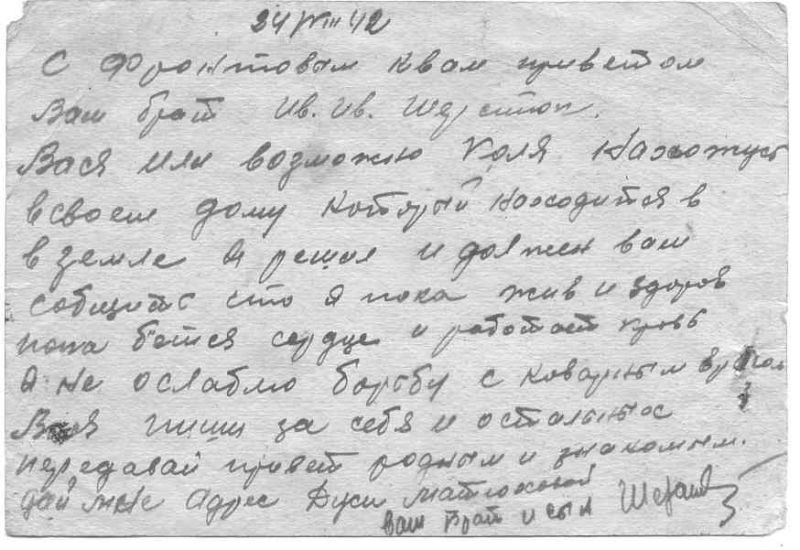 24/VIII 42
С Фронтовым к вам приветом
Ваш брат Ив. Ив.
Вася или возможно Коля нахожусь
в своем дому который находится в
в земле Я решил и должен вам
собщить что я пока жив и здоров
пока бется сердце и работает кровь
Я не ослаблю борьбу с коварным врагом
Вася пиши за себя и остальных
передавай привет родным и знакомым.
дай мне адрес Дуси
ваш брат и сын